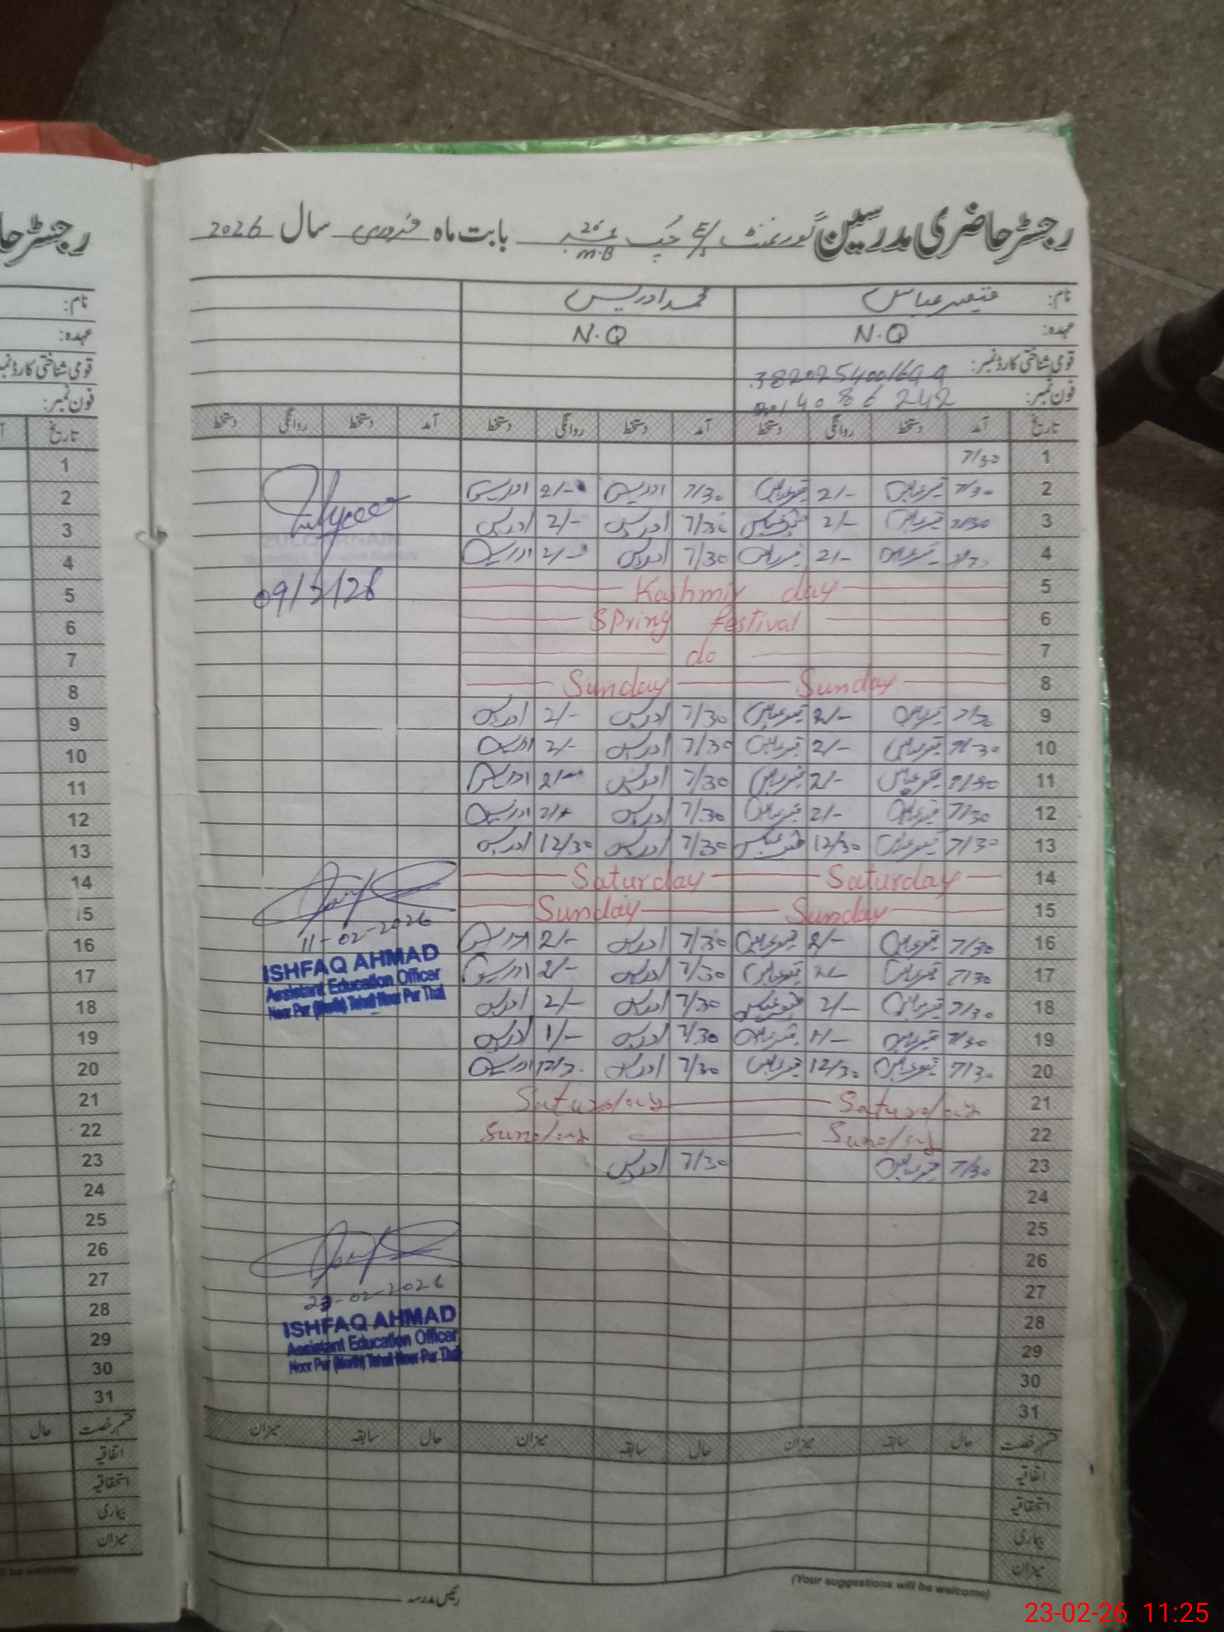 رجسٹر حاضری مدرسین گورنمنٹ E/S چک نمبر 26 M.B بابت ماہ فروری سال 2026
نام: قیصر عباس محمد ادریس
عہدہ: N.Q N.Q
قومی شناختی کارڈ نمبر:
فون نمبر:
تاریخ آمد دستخط روانگی دستخط آمد دستخط روانگی دستخط آمد دستخط روانگی دستخط
1 7/30
2 7/30 قیصر عباس 2/- قیصر عباس 7/30 ادریس 2/- ادریس
3 7/30 قیصر عباس 2/- قیصر عباس 7/30 ادریس 2/- ادریس
4 قیصر عباس 2/- قیصر عباس 7/30 ادریس 2/- ادریس
5 Kashmir day
6 Spring festival
7 do
8 Sunday Sunday
9 7/30 قیصر عباس 2/- قیصر عباس 7/30 ادریس 2/- ادریس
10 7/30 قیصر عباس 2/- قیصر عباس 7/30 ادریس 2/- ادریس
11 7/30 قیصر عباس 2/- قیصر عباس 7/30 ادریس 2/- ادریس
12 7/30 قیصر عباس 2/- قیصر عباس 7/30 ادریس 2/- ادریس
13 7/30 قیصر عباس 12/30 قیصر عباس 7/30 ادریس 12/30 ادریس
14 Saturday Saturday
15 Sunday Sunday
11-02-2026
ISHFAQ AHMAD
Assistant Education Officer
Noor Pur (North) Tehsil Noor Pur Thal
16 7/30 قیصر عباس 2/- قیصر عباس 7/30 ادریس 2/- ادریس
17 7/30 قیصر عباس 2/- قیصر عباس 7/30 ادریس 2/- ادریس
18 7/30 قیصر عباس 2/- قیصر عباس 7/30 ادریس 2/- ادریس
19 7/30 قیصر عباس قیصر عباس 7/30 ادریس 1/- ادریس
20 7/30 قیصر عباس 12/30 قیصر عباس 7/30 ادریس ادریس
21 Saturday Saturday
22 Sunday Sunday
23 7/30 قیصر عباس 7/30 ادریس
24
25
26
27
28
29
30
31
23-02-2026
ISHFAQ AHMAD
Assistant Education Officer
Noor Pur (North) Tehsil Noor Pur Thal
قسم رخصت حال سابقہ میزان حال سابقہ میزان حال سابقہ میزان
اتفاقیہ
استحقاقیہ
بیماری
میزان
(Your suggestions will be welcome)
رئیس مدرسہ
23-02-26 11:25